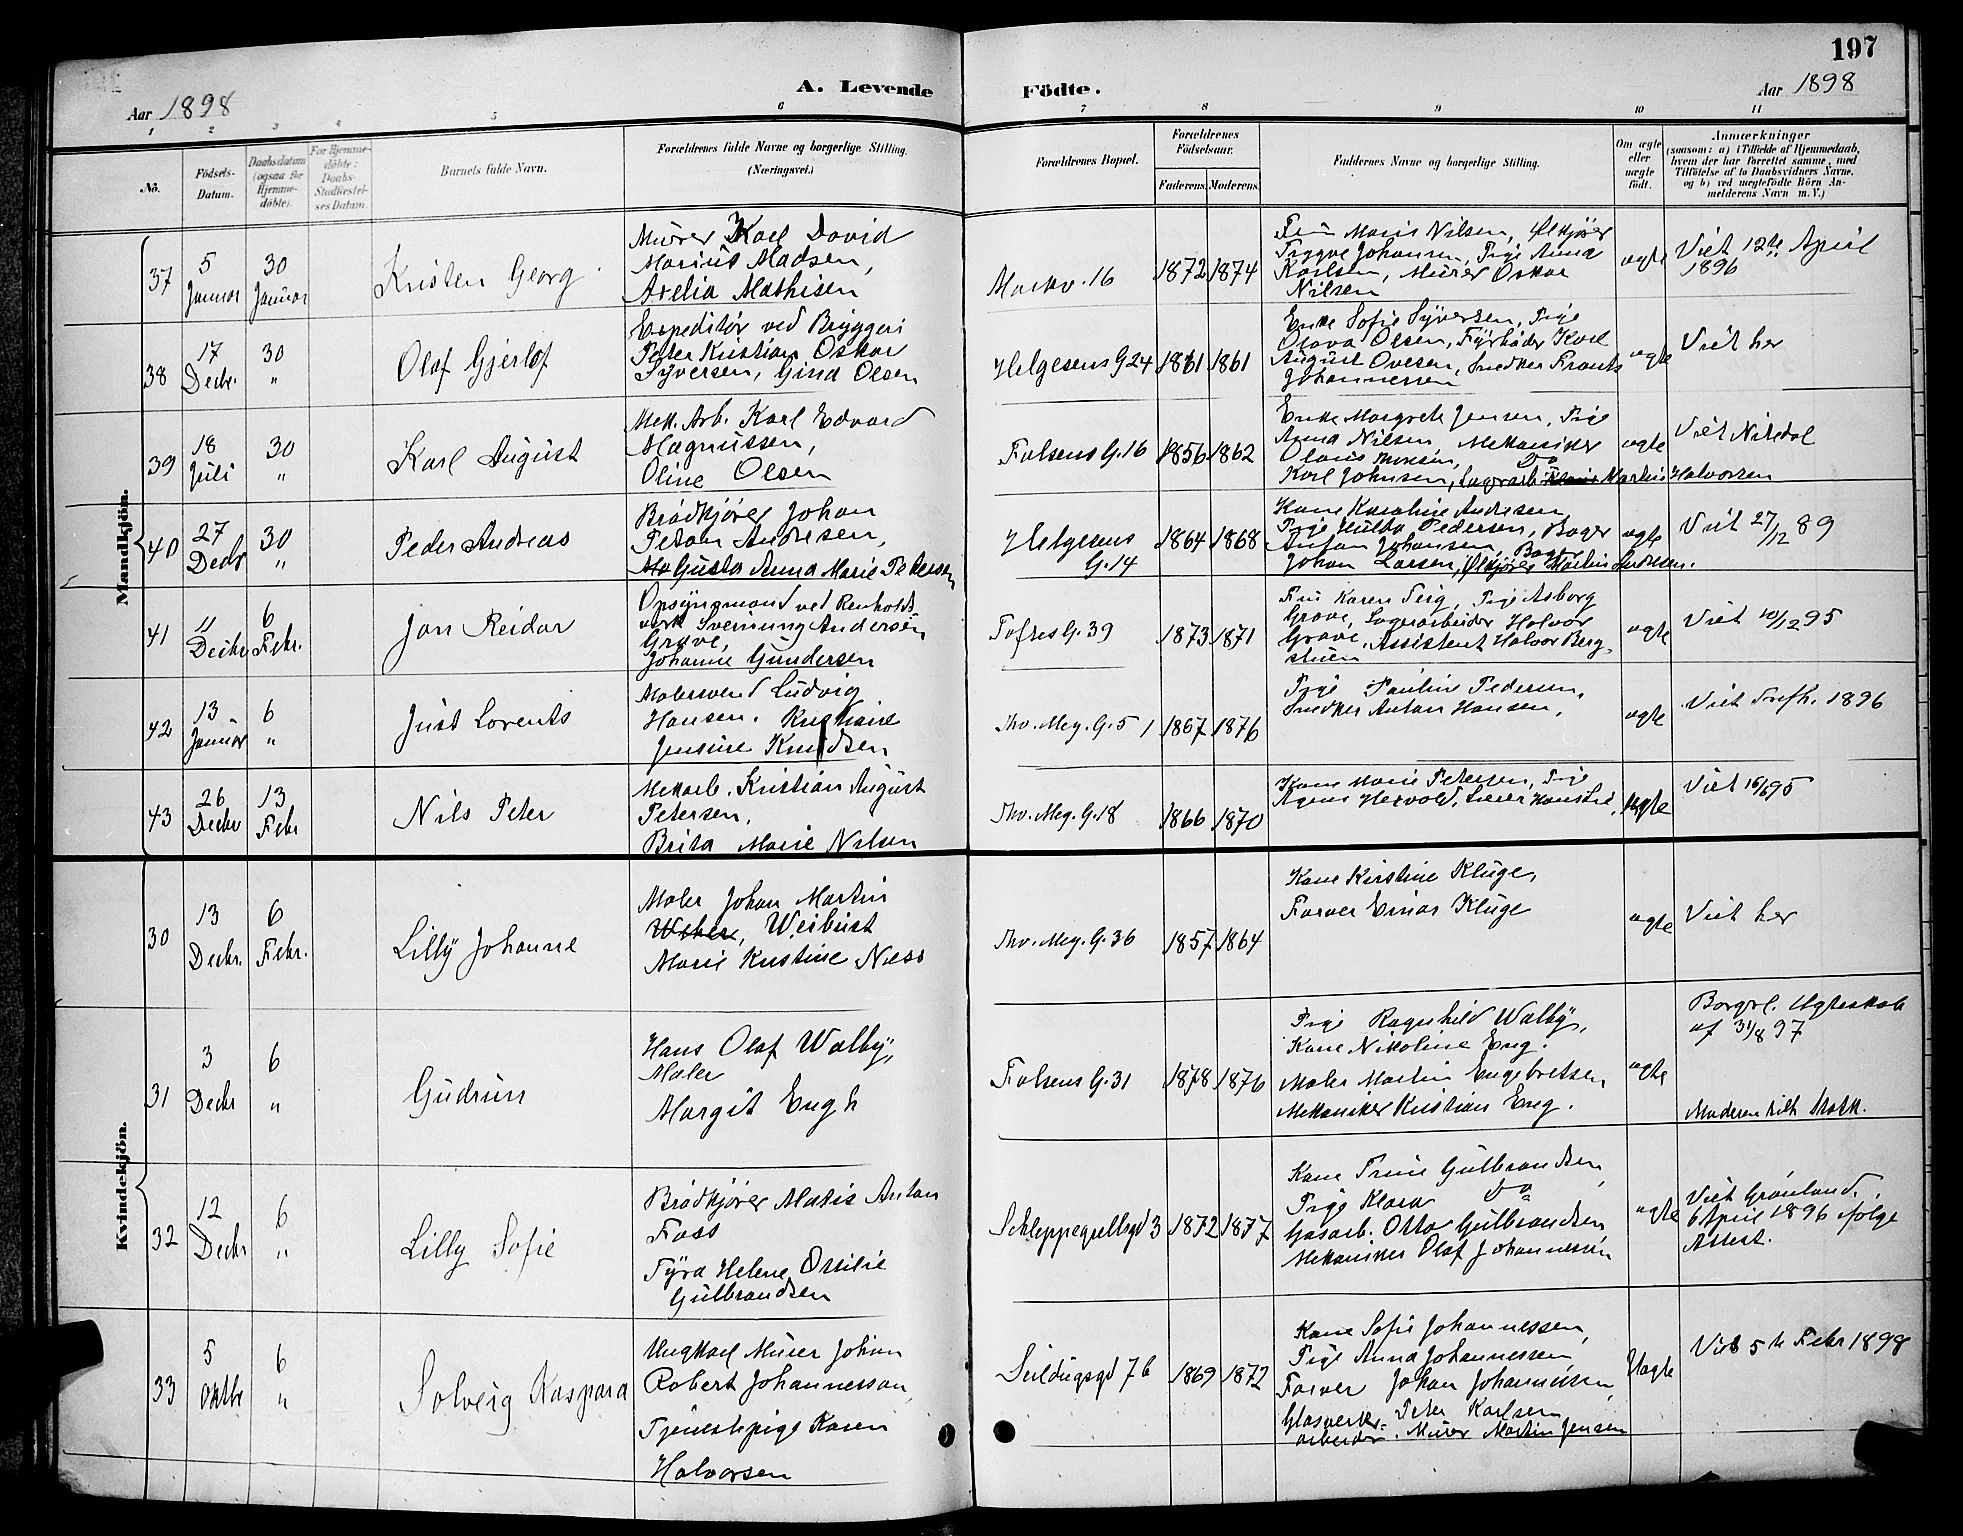 197
A. Levende Födte.
Aar 1898
Aar 1898
1 2 3 4 5 6 7 8 9 10 11
No.
Födsels-Datum.
Daabsdatum (ogsaa for Hjemme-döbte).
For Hjemme-döbte: Daabs-Stadfæstel-ses Datum.
Barnets fulde Navn.
Forældrenes fulde Navne og borgerlige Stilling.
(Næringsvei.)
Forældrenes Bopæl.
Forældrenes Födselsaar.
Faderens. Moderens.
Faddernes Navne og borgerlige Stilling.
Om ægte eller uægte födt.
Anmærkninger
(saasom: a) i Tilfælde af Hjemmedaab, hvem der har forrettet samme, med Tilföielse af to Daabsvidners Navne, og b) ved uægtefödte Börn An-melderens Navn m. V.)
Mandkjön.
37
5 Januar
30 Januar
Kristen Georg
Murer Karl David
Marius Madsen,
Axelia Mathisen
Markv. 16
1872 1874
Fru Maris Nilsen, Ølkjører
Trygve Johansen, Pige Anna
Karlsen, Murer Oskar
Nilsen
ægte
Viet 12te April
1896
38
17 Decbr.
30 "
Olaf Gjerlof
Expeditør ved Bryggeri
Peter Kristian Oskar
Syversen, Gina Olsen
Helgesens G 24
1861 1861
Enke Sofie Syversen, Pige
Olava Olsen, Fyrbøder Karl
August Ovesen, Snedker Frants
Johannessen
ægte
Viet her
39
18 Juli
30 "
Karl August
Mek. Arb. Karl Edvard
Magnussen,
Oline Olsen
Falsens G. 16
1856 1862
Enke Margrete Jensen, Pige
Anna Nilsen, Mekaniker
Olaus Monsen, Do
Karl Johnsen, Lagerarb. Martin Halvorsen
ægte
Viet Nitedal
40
27 Decbr
30 "
Peder Andreas
Brødkjører Johan
Petam Andresen,
Augusta Anna Marie Pedersen
Helgesens
G. 14
1864 1868
Kane Karoline Andresen,
Pige Hulda Pedersen, Bager
Anton Johansen, Bager
Johan Larsen, Ølkjører Martin Andresen.
ægte
Viet 27/12 89
41
11 Decbr
6 Febr.
Jan Reidar
Opsynsmand ved Renholds
verk Sveinung Andersen
Grave,
Johanne Gundersen
Toftes G. 39
1873 1871
Fru Karen Teig, Pige Asborg
Grave, Lagerarbeider Halvor
Grave, Assistent Halvor Berg-
stuen
ægte
Viet 10/12 95
42
13 Januar
6 "
Just Lorents
Malersvend Ludvig
Hansen, Kristiane
Jensine Knudsen
Thv. Mey. G. 51
1867 1876
Pige Pauline Pedersen,
Snedker Anton Hansen,
ægte
Viet Trefk. 1896
43
26 Decbr
13 Febr
Nils Peter
Mekarb. Kristian August
Petersen,
Brita Marie Nilsen
Thv. Mey. G. 18
1866 1870
Kane Marie Petersen, Pige
Agnes Hexvold, Hans Lie
ægte
Viet 16/6 95
Kvindekjön.
30
13 Decbr.
6 Febr.
Lilly Johanne
Maler Johan Martin
Weibust
Marie Kristine Næss
Thv. Mey. G. 36
1857 1864
Kane Kirstine Kluge,
Farver Einar Kluge
ægte
Viet her
31
3 Decbr
6 "
Gudrun
Hans Olaf Walby,
Maler
Margit Engh
Falsens G. 31
1878 1876
Pige Ragnhild Walby,
Kane Nikoline Eng.
Maler Martin Engebretsen
Mekaniker Kristian Eng.
ægte
Borgrl. Ægteskab
af 31/8 97
Moderen tilh Statsk.
32
12 Decbr
6 "
Lilly Sofie
Brødkjører Mathis Anton
Foss
Tyra Helene Otilie
Gulbrandsen
Schleppegrellsgd 3
1872 1877
Kane Trine Gulbrandsen,
Pige Klara Do
Gasarb. Otto Gulbrandsen
Mekaniker Olaf Johannessen
ægte
Viet Grønland.
6 April 1896 ifølge
Attest.
33
5 Oktbr
6 "
Solveig Kaspara
Ungkarl Murer Johan
Robert Johannesson,
Tjenestepige Karen
Halvorsen
Seildugsgd 7b
1869 1872
Kane Sofie Johannessen,
Pige Anna Johannessen,
Farver Johan Johannessen,
Glasverks- Peter Karlsen
arbeider. Murer Martin Jensen
Uægte
Viet 5te Febr 1898